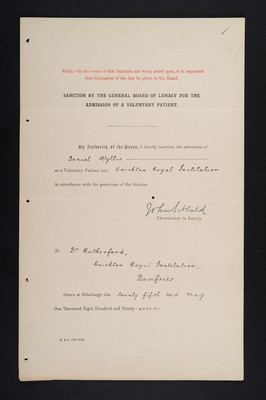 NOTE.—In the event of this Sanction not being acted upon, it is requested
that intimation of the fact be given to the Board.
SANCTION BY THE GENERAL BOARD OF LUNACY FOR THE
ADMISSION OF A VOLUNTARY PATIENT.
By Authority of the Board, I hereby sanction the admission of
Daniel Wyllie
as a Voluntary Patient into Crichton Royal Institution
in accordance with the provisions of the Statute.
John Sibbald
Commissioner in Lunacy.
To Dr Rutherford,
Crichton Royal Institution,
Dumfries
Given at Edinburgh this twenty fifth day of May
One Thousand Eight Hundred and Ninety-seven.